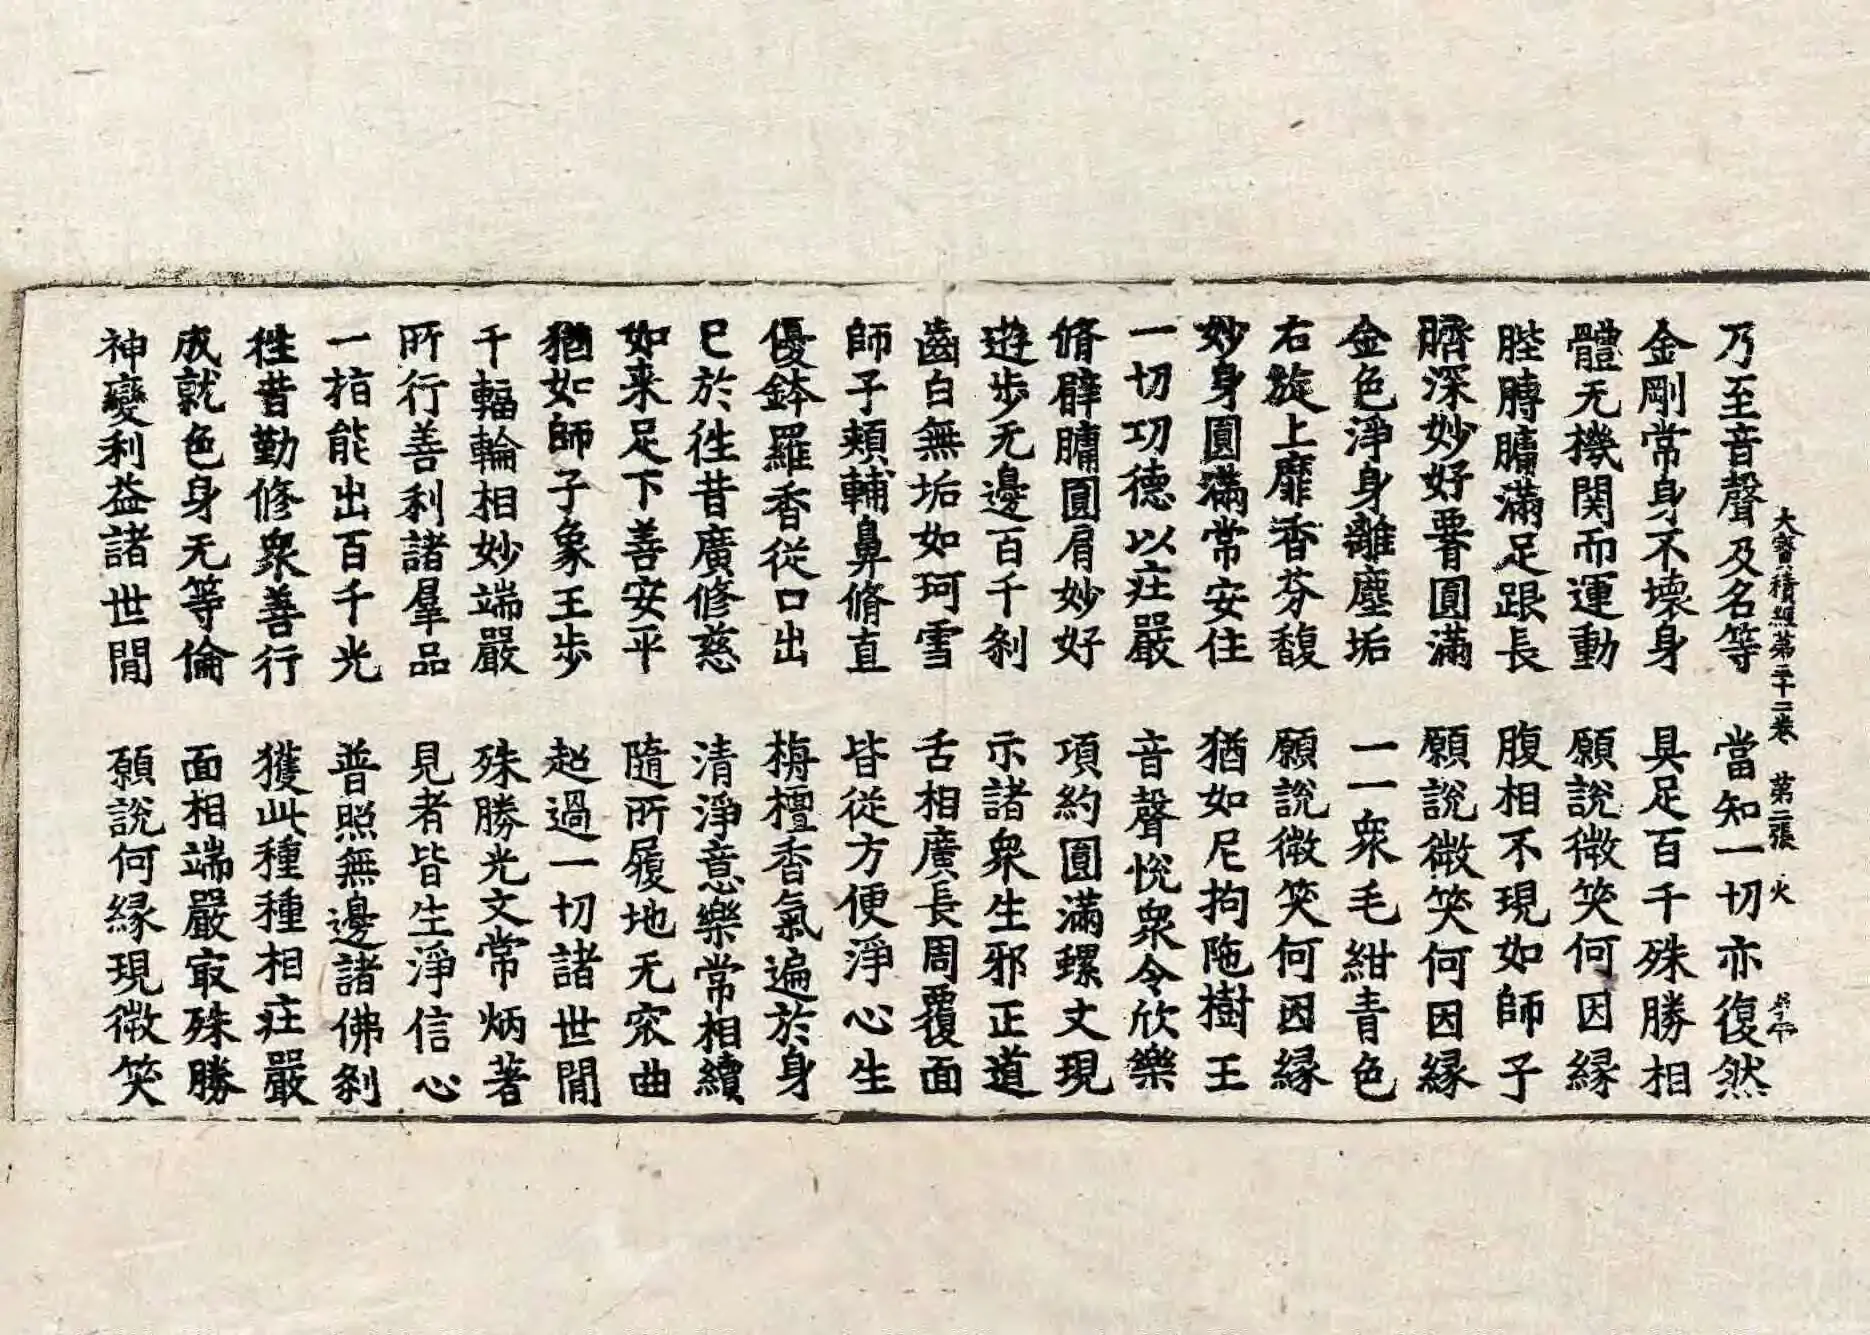 大寶積經第三十二卷　第二張　火
乃至音聲及名等　當知一切亦復然
金剛常身不壞身　具足百千殊勝相
體无機関而運動　願說微笑何因緣
䏶膞𦟛滿足跟長　腹相不現如師子
臍深妙好䯗圓滿　願說微笑何因緣
金色淨身離塵垢　一一衆毛紺青色
右旋上靡香芬馥　願說微笑何因緣
妙身圓滿常安住　猶如尼拘陁樹王
一切功德以庄嚴　音聲悅衆令欣樂
脩臂𦟛圓肩妙好　項約圓滿螺文現
遊步无邊百千剎　示諸衆生邪正道
齒白無垢如珂雪　舌相廣長周覆面
師子頰輔鼻脩直　皆從方便淨心生
優鉢羅香從口出　栴檀香氣遍於身
已於往昔廣修慈　清淨意樂常相續
如来足下善安平　隨所履地无窊曲
猶如師子象王步　超過一切諸世間
千輻輪相妙端嚴　殊勝光文常炳著
所行善利諸羣品　見者皆生淨信心
一指能出百千光　普照無邊諸佛剎
往昔勤修衆善行　獲此種種相庄嚴
成就色身无等倫　面相端嚴㝡殊勝
神變利益諸世間　願說何緣現微笑